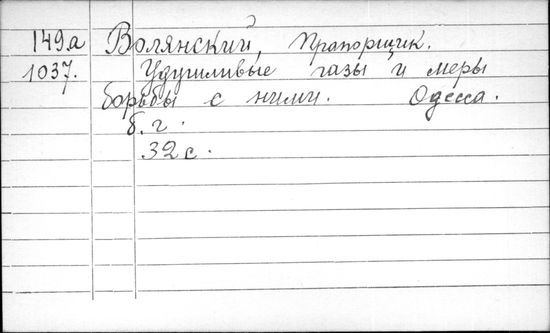 149а Волянский, Прапорщик.
1037. Удушливые газы и меры
борьбы с ними. Одесса.
б. г.
32 с.